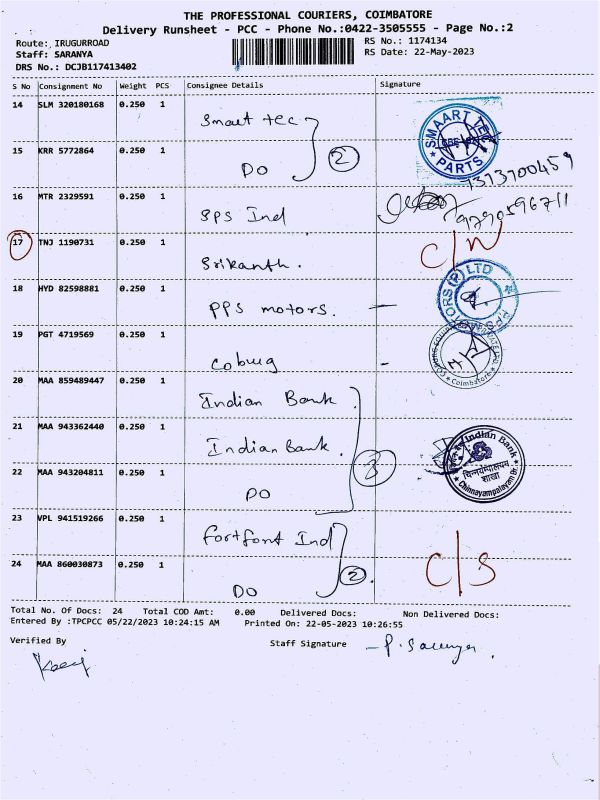 THE PROFESSIONAL COURIERS, COIMBATORE
Delivery Runsheet - PCC - Phone No.:0422-3505555 - Page No.:2
Route: IRUGURROAD
RS No.: 1174134
Staff: SARANYA
RS Date: 22-May-2023
DRS No.: DCJB117413402
S No Consignment No Weight PCS Consignee Details Signature
14 SLM 320180168 0.250 1 Smart tec
SMAART TEC PARTS
15 KRR 5772864 0.250 1 DO 2
16 MTR 2329591 0.250 1 SPS Ind 9790596711
17 TNJ 1190731 0.250 1 Srikanth. C/N
18 HYD 82598881 0.250 1 PPS motors. –
19 PGT 4719569 0.250 1 Coburg -
Coimbatore
20 MAA 859489447 0.250 1 Indian Bank
21 MAA 943362440 0.250 1 Indian Bank. 3
Indian Bank
शाखा
Chinnayampalayam Br.
22 MAA 943204811 0.250 1 DO
23 VPL 941519266 0.250 1 Fortfont Ind
24 MAA 860030873 0.250 1 DO 2. C/S
Total No. Of Docs: 24 Total COD Amt: 0.00 Delivered Docs: Non Delivered Docs:
Entered By :TPCPCC 05/22/2023 10:24:15 AM Printed On: 22-05-2023 10:26:55
Verified By
Staff Signature